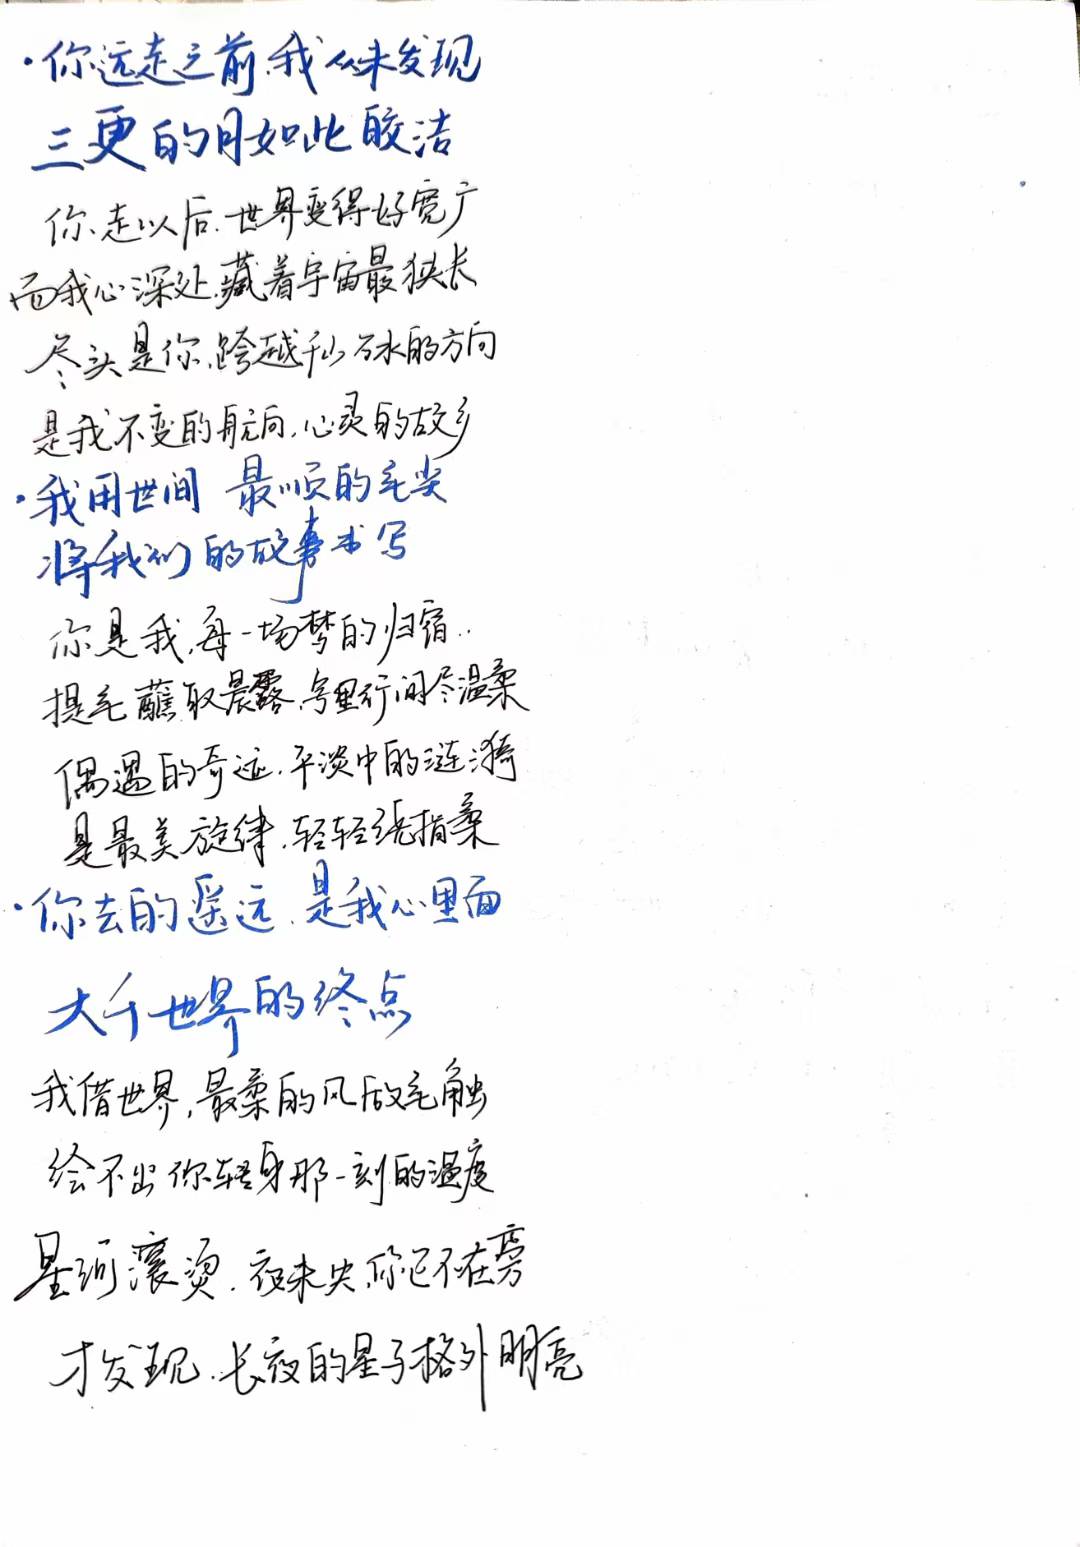 ·你远走之前,我从未发现
三更的月如此皎洁
你走以后,世界变得好宽广
而我心深处,藏着宇宙最狭长
尽头是你,跨越千山万水的方向
是我不变的航向,心灵的故乡
·我用世间 最顺的毛尖
将我们的故事书写
你是我,每一场梦的归宿..
提毛蘸取晨露,字里行间尽温柔
偶遇的奇迹,平淡中的涟漪
是最美旋律,轻轻绕指柔
·你去的遥远,是我心里面
大千世界的终点
我借世界,最柔的风做毛触
绘不出你转身那一刻的温度
星河滚烫,夜未央,你已不在旁
才发现,长夜的星子格外明亮